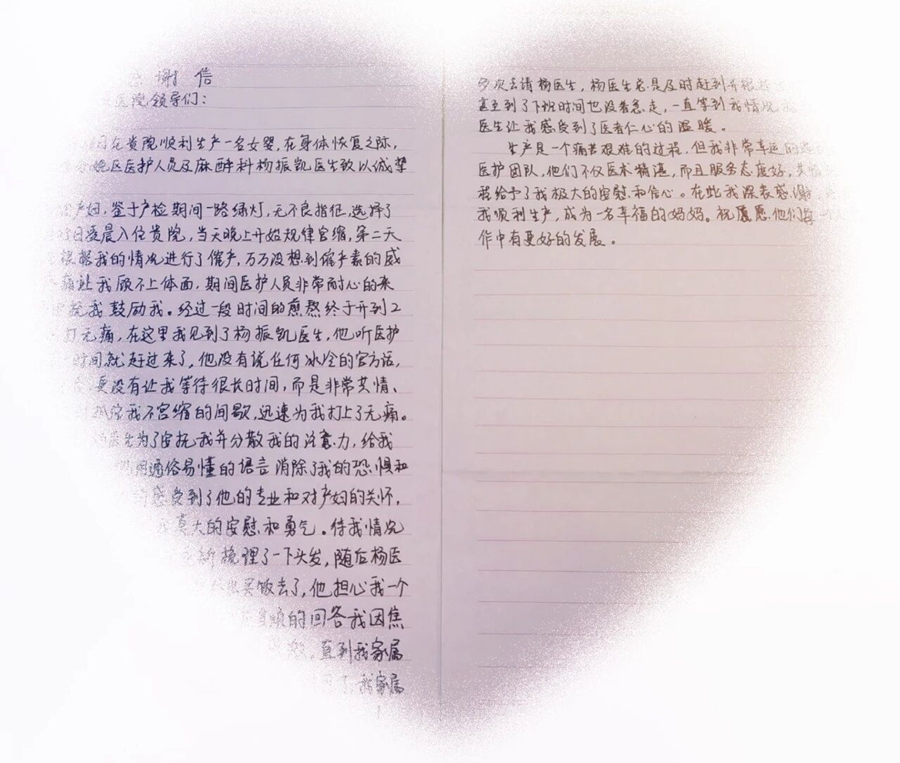 谢信
医院领导们：
日在贵院顺利生产一名女婴，在身体恢复之际，
区医护人员及麻醉科杨振凯医生致以诚挚
产妇，鉴于产检期间一路绿灯，无不良指征，选择了
日凌晨入住贵院，当天晚上开始规律宫缩，第二天
根据我的情况进行了催产，万万没想到催产素的威
痛让我顾不上体面，期间医护人员非常耐心的来
我鼓励我。经过一段时间的煎熬终于开到2
打无痛，在这里我见到了杨振凯医生，他听医护
时间就赶过来了，他没有说任何冰冷的官方话，
更没有让我等待很长时间，而是非常共情、
我不宫缩的间歇，迅速为我打上了无痛。
为了安抚我并分散我的注意力，给我
用通俗易懂的语言消除了我的恐惧和
感受到了他的专业和对产妇的关怀，
莫大的安慰和勇气。待我情况
梳理了一下头发，随后杨医
买饭去了，他担心我一个
的回答我因焦
直到我家属
我家属
多次去请杨医生，杨医生总是及时赶到并根据
甚至到了下班时间也没着急走，一直等到我情况
医生让我感受到了医者仁心的温暖。
生产是一个痛苦艰难的过程，但我非常幸运的
医护团队，他们不仅医术精湛，而且服务态度好，
程给予了我极大的安慰和信心。在此我深表感谢
我顺利生产，成为一名幸福的妈妈。祝愿愿他们
作中有更好的发展。